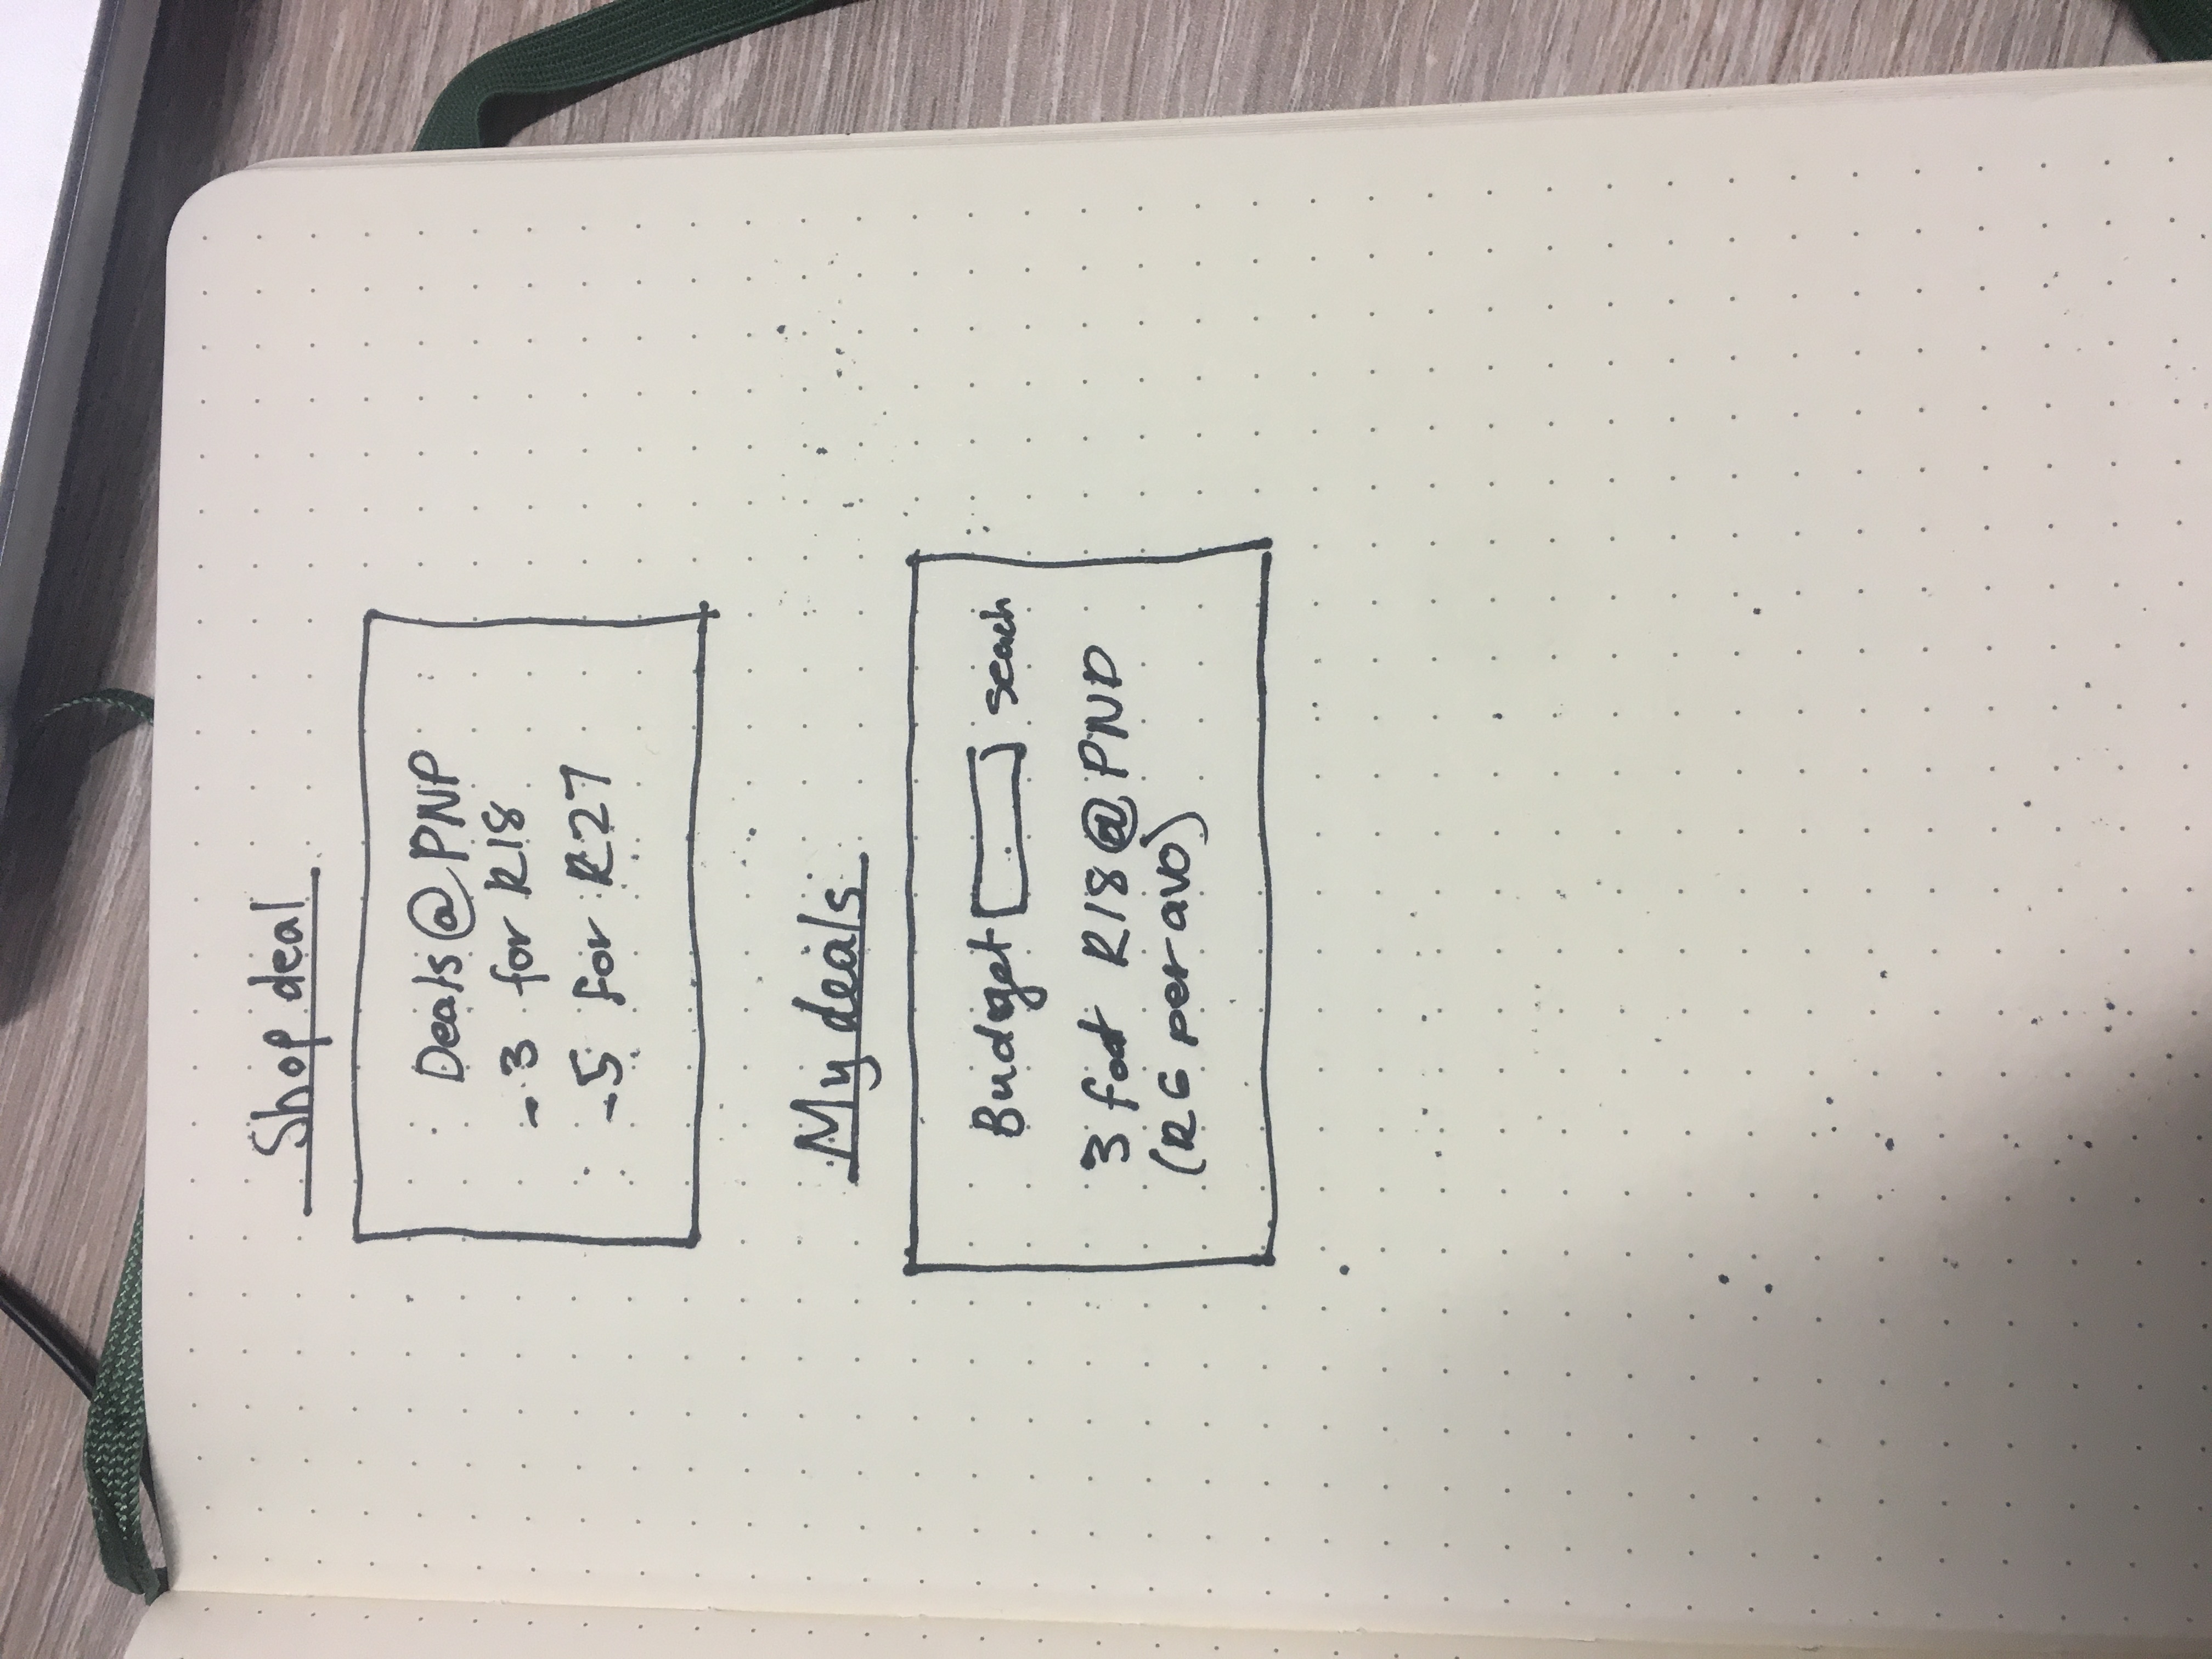 Shop deal
Deals @ PNP
- 3 for R18
- 5 for R27
My deals
Budget seach
3 for R18 @ PNP
(R6 per avo)